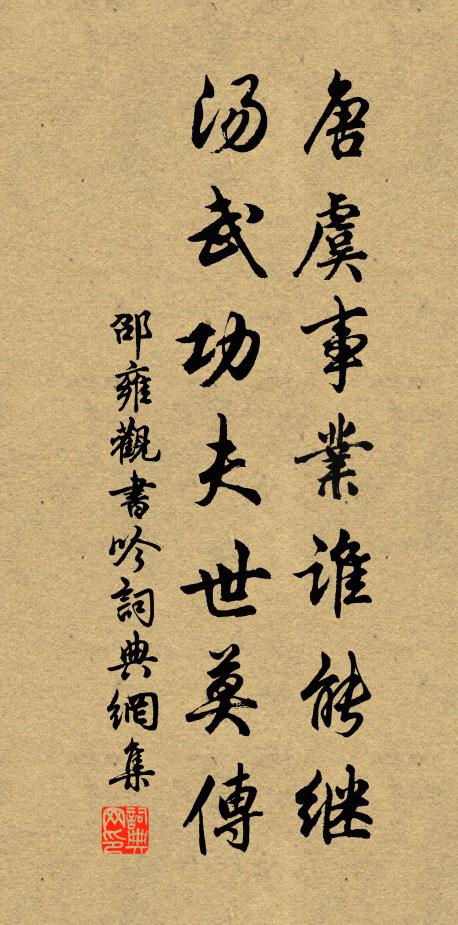 唐虞事業谁能继
汤武功夫世莫傳
邵雍觀書吟詞典網集
詞典网印